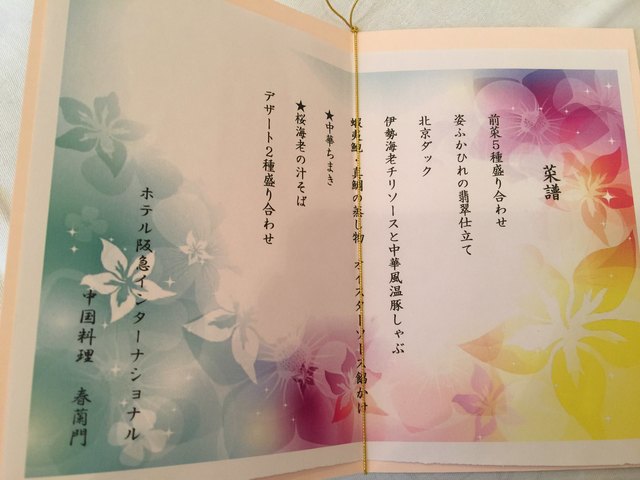 菜譜
前菜5種盛り合わせ
姿ふかひれの翡翠仕立て
北京ダック
伊勢海老チリソースと中華風温豚しゃぶ
蝦夷鮑・真鯛の蒸し物 オイスターソース餡かけ
★中華ちまき
★桜海老の汁そば
デザート2種盛り合わせ
ホテル阪急インターナショナル
中国料理 春蘭門